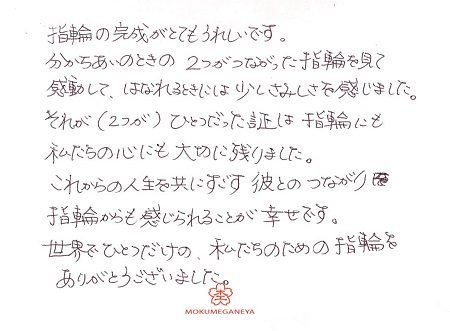 指輪の完成がとてもうれしいです。
分かちあいのときの 2つがつながった指輪を見て
感動して、はなれるときには少しさみしさを感じました。
それが(2つが)ひとつだった証は指輪にも
私たちの心にも大切に残りました。
これからの人生を共にすごす 彼とのつながりを
指輪からも感じられることが幸せです。
世界でひとつだけの、私たちのための指輪を
ありがとうございました。
MOKUMEGANEYA